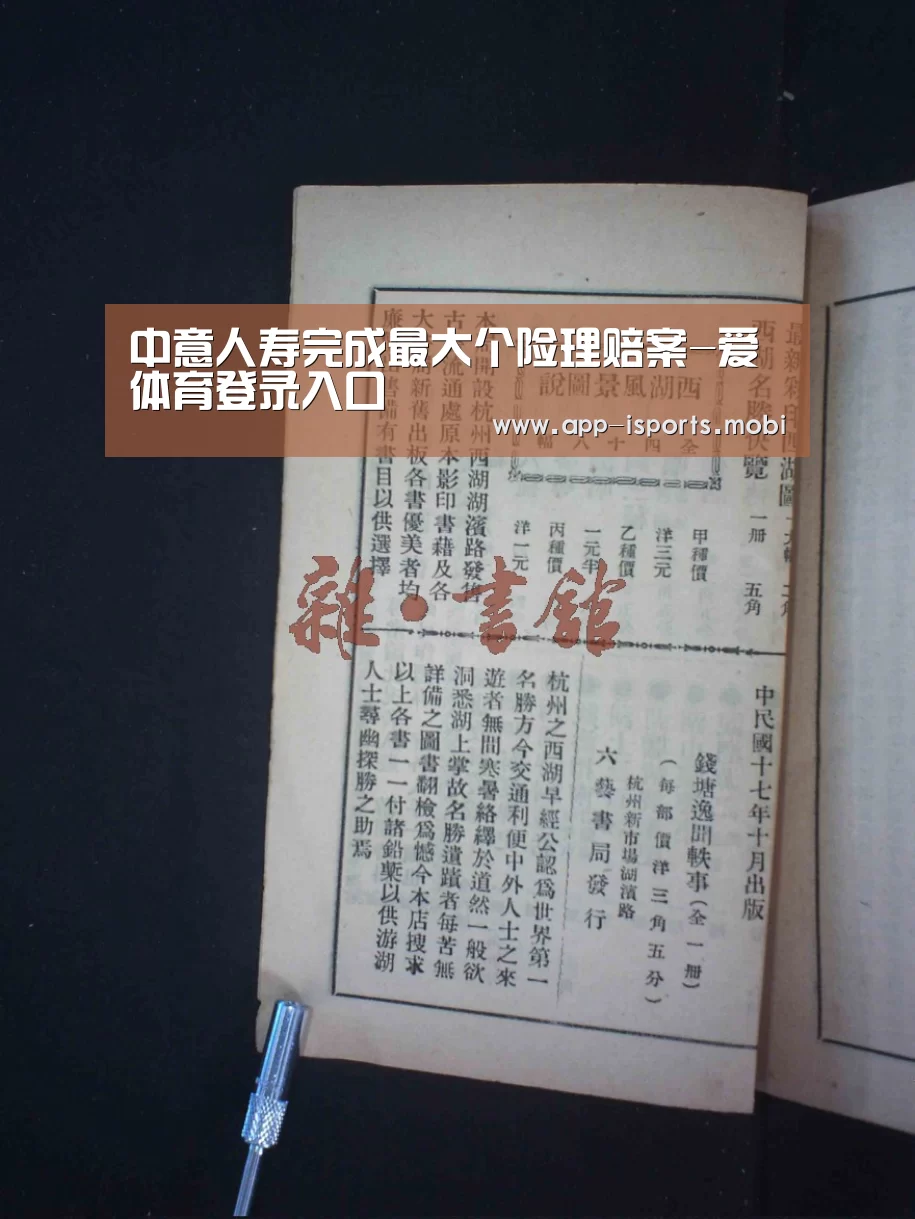 中意人寿完成最大个险理赔案-爱
体育登录入口
www.app-isports.mobi
雜·書館
最新彩印西湖圖
西湖名勝快覽 一册 五角
西湖風景
圖說
甲種價
洋三元
乙種價
一元半
丙種價
洋一元
開設杭州西湖湖濱路發售
流通處原本影印書藉及各
新舊出板各書優美者均
備有書目以供選擇
中民國十七年十月出版
錢塘逸聞軼事(全一册)
(每部價洋三角五分)
杭州新市場湖濱路
六藝書局發行
杭州之西湖早經公認爲世界第一
名勝方今交通利便中外人士之來
遊者無間寒暑絡繹於道然一般欲
洞悉湖上掌故名勝遺蹟者每苦無
詳備之圖書翻檢爲憾今本店搜求
以上各書一一付諸鉛槧以供游湖
人士尋幽探勝之助焉